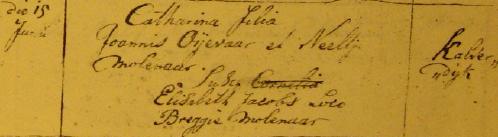 die 15
Junii
Catharina filia
Joannis Oijevaar et Neeltje
Molenaar
Elisabeth Jacobs loco
Breggie Molenaar
Kalver-
dijk